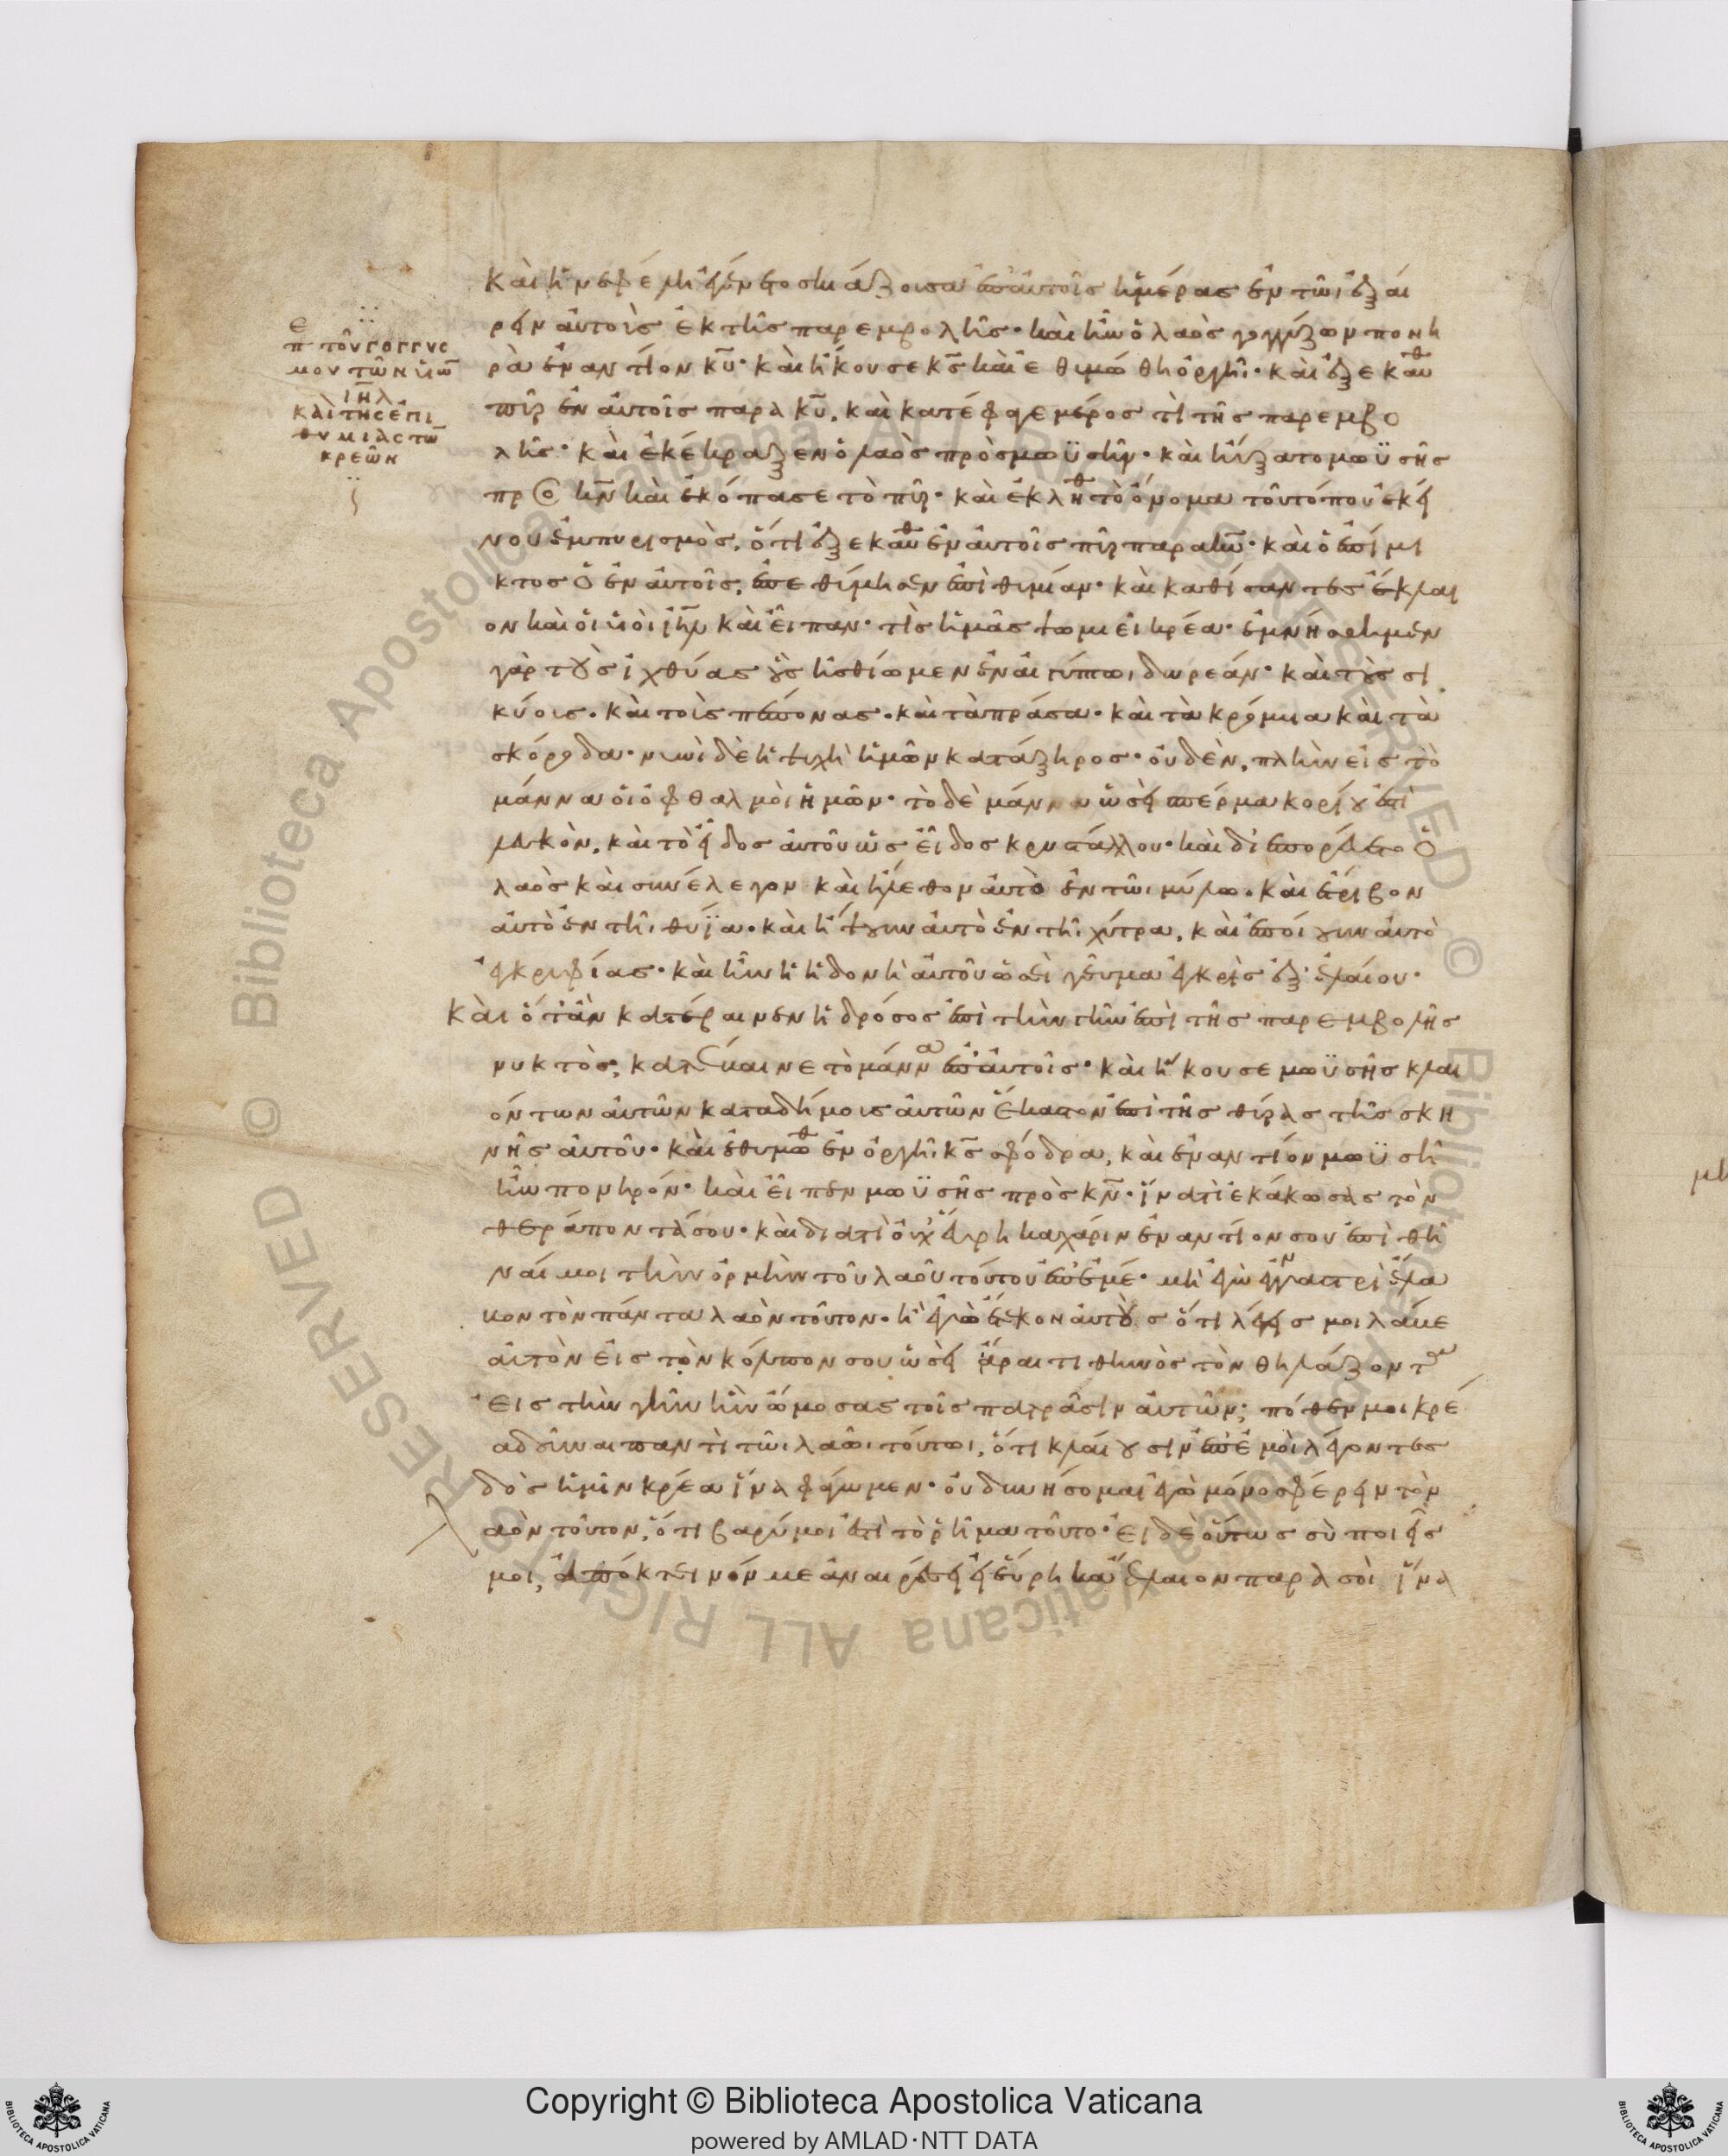 καὶ ἡ νεφέλη ἐγένετο σκιάζουσα ἐπ' αὐτοῖς ἡμέρας ἐν τῶι ἐξαί
ρειν αὐτοὺς ἐκ τῆς παρεμβολῆς· καὶ ἦν ὁ λαὸς γογγύζων πονη
ρὰ ἐναντίον κ̅υ̅· καὶ ἤκουσε κ̅ς̅ καὶ ἐθυμώθη ὀργῆι· καὶ ἐξεκαύθ
πῦρ ἐν αὐτοῖς παρὰ κ̅υ̅, καὶ κατέφαγε μέρος τὶ τῆς παρεμβο
λῆς· καὶ ἐκέκραξεν ὁ λαὸς πρὸς μωϋσῆν· καὶ ηὔξατο μωϋσῆς
πρὸς κ̅ν̅ καὶ ἐκόπασε τὸ πῦρ· καὶ ἐκλήθ τὸ ὄνομα τοῦ τόπου ἐκεί
νου ἐμπυρισμὸς, ὅτι ἐξεκαύθ ἐν αὐτοῖς πῦρ παρὰ κ̅υ̅· καὶ ὁ ἐπίμι
κτος ὁ ἐν αὐτοῖς, ἐπεθύμησεν ἐπιθυμίαν· καὶ καθίσαντες ἔκλαι
ον καὶ οἱ υἱοὶ ι̅η̅λ̅ καὶ εἶπαν· τὶς ἡμᾶς ψωμιεῖ κρέα· ἐμνήσθημεν
γὰρ τοὺς ἰχθύας οὓς ἠσθίομεν ἐν αἰγύπτωι δωρεάν· καὶ τοὺς σι
κύους· καὶ τοὺς πέπονας· καὶ τὰ πράσα· καὶ τὰ κρόμμυα καὶ τὰ
σκόροδα· νυνὶ δὲ ἡ ψυχὴ ἡμῶν κατάξηρος· οὐδὲν, πλὴν εἰς τὸ
μάννα οἱ ὀφθαλμοὶ ἡμῶν· τὸ δὲ μάννα ὡσεὶ σπέρμα κορίου ἐστὶ
λευκὸν, καὶ τὸ εἶδος αὐτοῦ ὡς εἶδος κρυστάλλου· καὶ διεπορεύετο ὁ
λαὸς καὶ συνέλεγον καὶ ἤληθον αὐτὸ ἐν τῶι μύλω· καὶ ἔτριβον
αὐτὸ ἐν τῆι θυΐα· καὶ ἥψουν αὐτὸ ἐν τῆι χύτρα, καὶ ἐποίουν αὐτὸ
ἐγκρυφίας· καὶ ἦν ἡ ἡδονὴ αὐτοῦ ὡσεὶ γεῦμα ἐγκρὶς ἐξ ἐλαίου·
καὶ ὅταν κατέβαινεν ἡ δρόσος ἐπὶ τὴν τὴν ἐπὶ τῆς παρεμβολῆς
νυκτὸς, κατέβαινε τὸ μάννα ἐπ' αὐτοῖς· καὶ ἤκουσε μωϋσῆς κλαι
όντων αὐτῶν κατα δήμους αὐτῶν ἕκαστον ἐπὶ τῆς θύρας τῆς σκη
νῆς αὐτοῦ· καὶ ἐθυμώθ ἐν ὀργῆι κ̅ς̅ σφόδρα, καὶ ἐναντίον μωϋσῆ
ἦν πονηρόν· καὶ εἶπεν μωϋσῆς πρὸς κ̅ν̅· ἵνα τὶ ἐκάκωσας τὸν
θεράποντά σου· καὶ διατὶ οὐχ εὕρηκα χάριν ἐναντίον σου ἐπιθεῖ
ναί μοι τὴν ὁρμὴν τοῦ λαοῦ τούτου ἐπ' ἐμέ· μὴ ἐγὼ ἐν γαστρὶ ἔλα
βον τὸν πάντα λαὸν τοῦτον· ἢ ἐγὼ ἔτεκον αὐτοὺς ὅτι λέγεις μοι λάβε
αὐτὸν εἰς τὸν κόλπον σου ὡσεὶ ἄραι τιθηνὸς τὸν θηλάζοντα
εἰς τὴν γῆν ἣν ὤμοσας τοῖς πατράσιν αὐτῶν; πόθεν μοι κρέ
α δοῦναι παντὶ τῶι λαῶι τούτωι, ὅτι κλαίουσιν ἐπ' ἐμοὶ λέγοντες
δὸς ἡμῖν κρέα ἵνα φάγωμεν· οὐ δυνήσομαι ἐγὼ μόνος φέρειν τὸν
λαὸν τοῦτον, ὅτι βαρύ μοι ἐστὶ τὸ ῥῆμα τοῦτο· εἰ δὲ οὕτως σὺ ποιεῖς
μοι, ἀπόκτεινόν με ἀναιρέσει εἰ εὕρηκα ἔλεον παρὰ σοὶ ἵνα
π̅ε̅ τοῦ γογγυσ
μου τῶν υἱῶν
ι̅η̅λ̅
καὶ τῆς ἐπι
θυμίας τῶν
κρεῶν
Copyright © Biblioteca Apostolica Vaticana
powered by AMLAD·NTT DATA